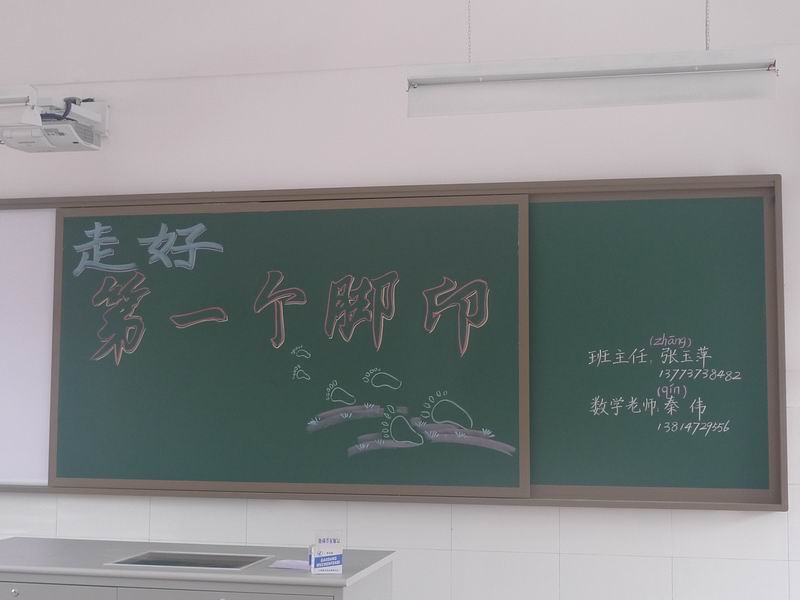 走好
第一个脚印
(zhāng)
班主任:张玉萍
13773738482
(qín)
数学老师:秦伟
13814729556